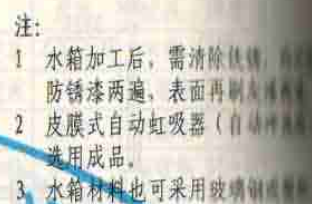 注:
1 水箱加工后,需清除铁锈,
防锈漆两遍、表面再刷
2 皮膜式自动虹吸器(自动
选用成品。
3 水箱材料也可采用玻璃钢或